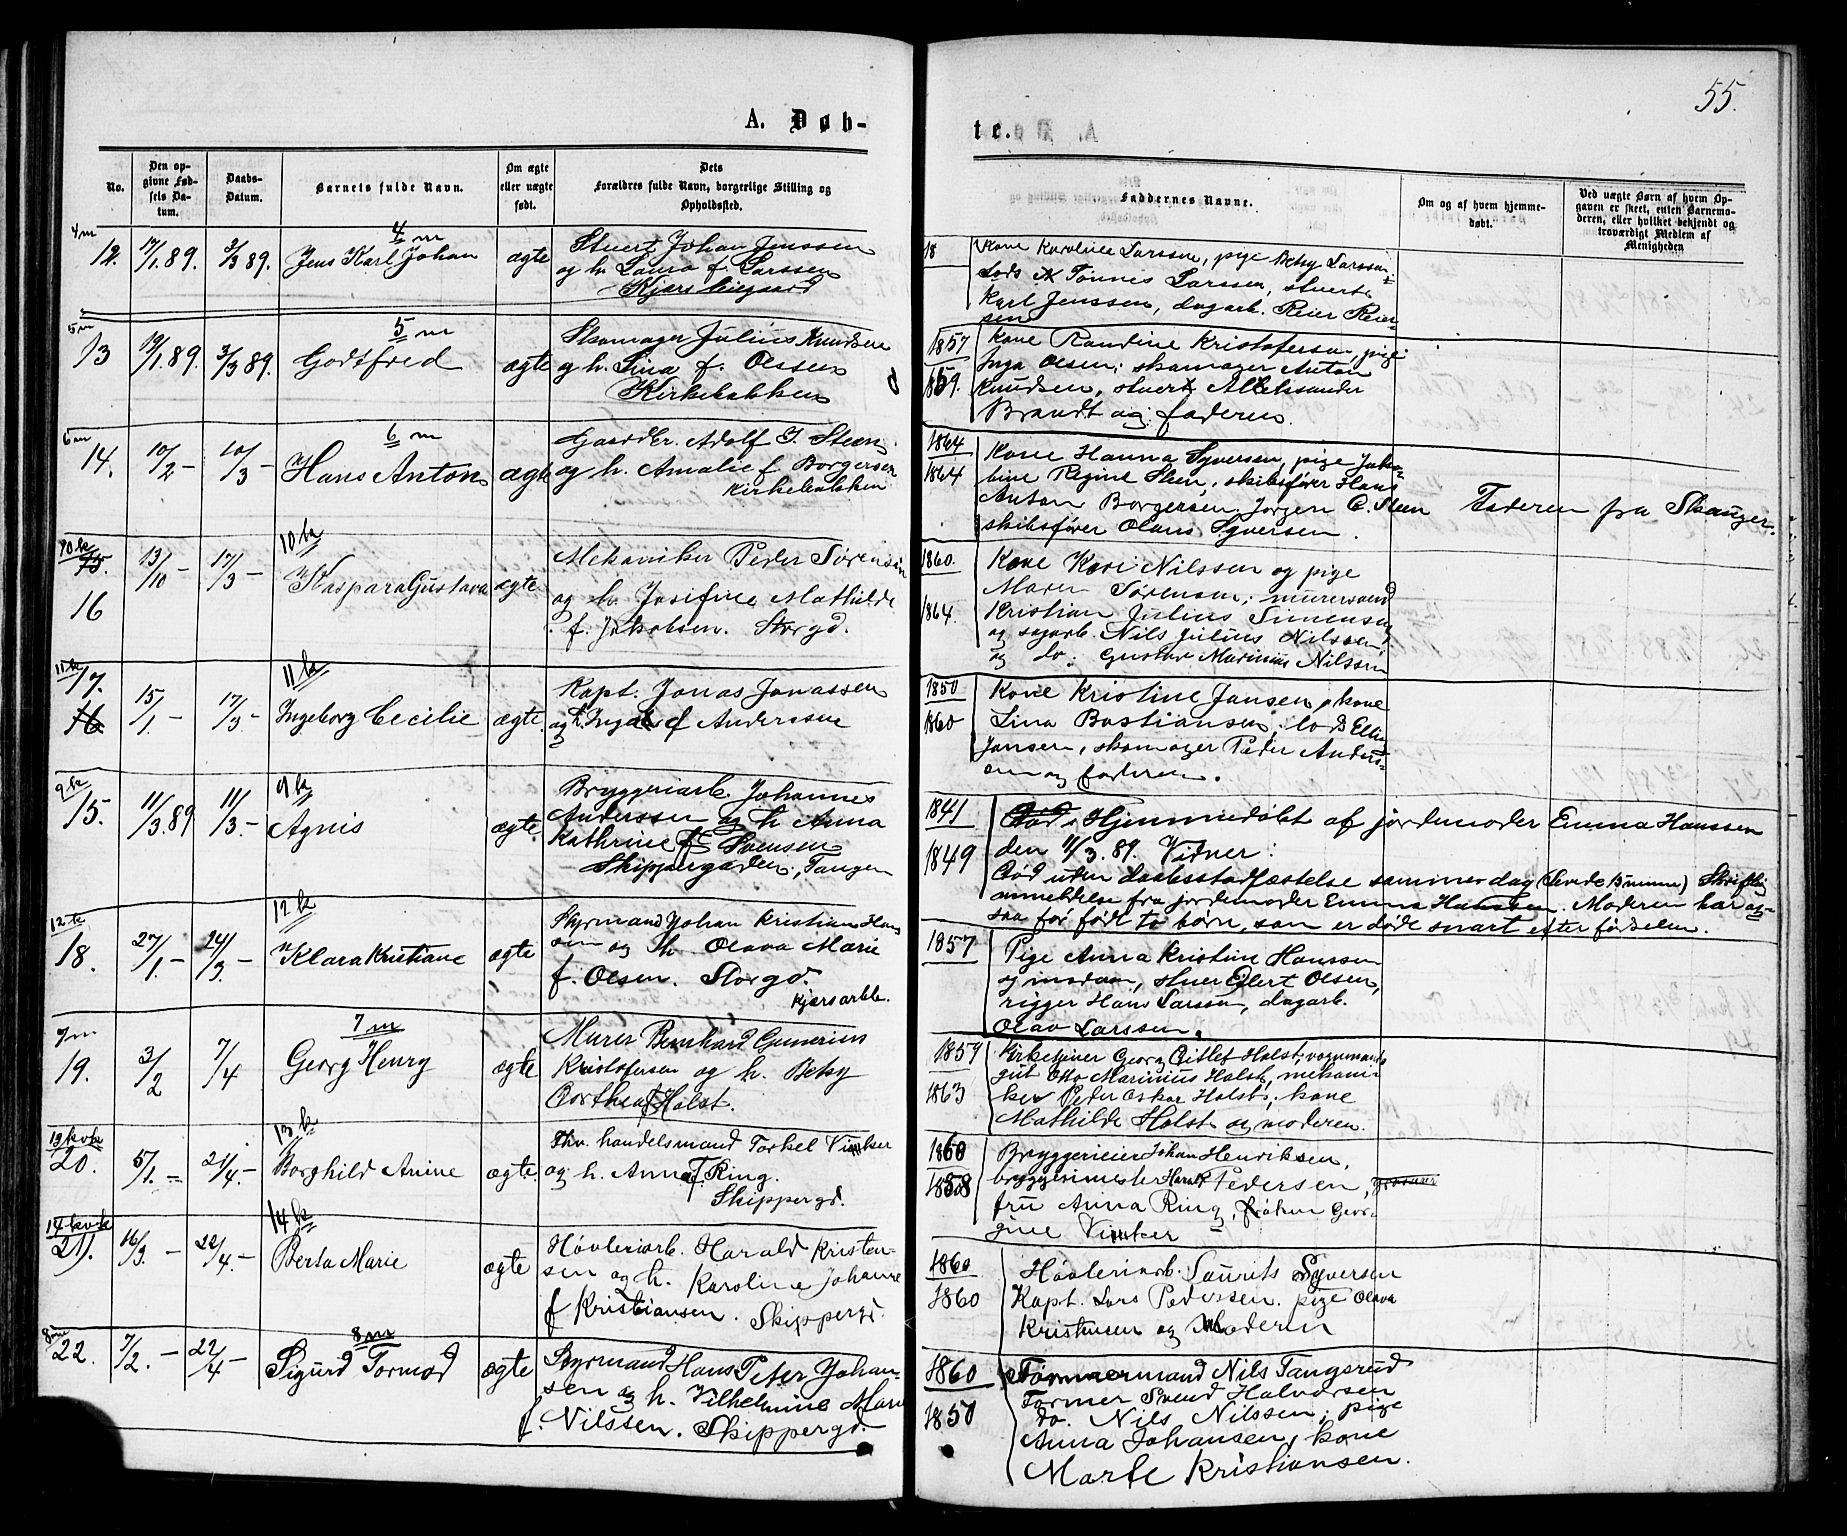 55.
A. Døb-
te.
No.
Den op-
givne Fød-
sels Da-
tum.
Daabs-
Datum.
Barnets fulde Navn.
Om ægte
eller uægte
født.
Dets
Forældres fulde Navn, borgerlige Stilling og
Opholdssted.
Faddernes Navne.
Om og af hvem hjemme-
døbt.
Ved uægte Børn af hvem Op-
gaven er skeet, enten Barnemo-
deren, eller hvilket bekjendt og
troværdigt Medlem af
Menigheden
4m
12. 17/1.89. 3/3 89. 4 m
Jens Karl Johan ægte
Stuert Johan Jenssen
og h. Laura f. Larssen
18
Kone Karoline Larssen, pige Betsy Larssen
Lods Tønnes Larssen, stuert
Karl Jenssen, dagarb. Reier Reier-
sen
5m
13 19/1.89. 3/3 89. 5 m
Godtfred ægte
Skomager Julius Knudsen
og h. Lina f. Olssen
Kirkebakken
1857
1859.
Kone Randine Kristofersen, pige
Inga Olsen; skomager Anton
Knudsen, stuert Alleksander
Brandt og faderen.
6m
14. 10/2 - 10/3 - 6 m
Hans Anton ægte
Gaardbr. Adolf J. Steen
og h. Amalie f Borgersen
Kirkebakken
1864
1864
Kone Hanna Syversen, pige Jako-
bine Regine Steen, skibsfører Hans
Anton Borgersen, Jørgen C. Steen
skibsfører Olaus Syversen.
Faderen fra Skauger.
10k
15.
16
13/10 - 17/3 - 10 k
Kaspara Gustava ægte
Mekaniker Peder Sørensen
og h. Josefine Mathilde
f. Jakobsen. Storgd.
1860.
1864.
Kone Kari Nilssen og pige
Maren Sørensen; murersvend
Kristian Julius Simensen
og sagarb. Nils Julius Nilssen,
og do. Gustav Marinius Nilssen
11k
17.
16
15/1 - 17/3 - 11 k
Ingeborg Cecilie ægte.
Kapt. Jonas Jonassen
og h. Inga f Anderssen
1850
1860
Kone Kristine Jansen, kone
Lina Bastiansen; lods Ellin
Jansen, skomager Peder Anders-
sen og faderen.
9k
15. 11/3.89 11/3 - 9 k
Agnis ægte.
Bryggeriarb. Johannes
Anderssen og h Anna
Kathrine f Svensen
Skippergaden, Tangen
1841
1849
Død Hjemmedøbt af jordemoder Emma Hanssen
den 11/3.89. Vidner:
Død uden daabsstadfæstelse sammer dag Skriftlig
anmeldelse fra jordemoder Emma Hanssen. Moderen har og-
saa før født to børn, som er døde snart efter fødselen.
12k
18. 27/1 - 24/3 - 12 k
Klara Kristiane ægte
Styrmand Johan Kristian Han-
sen og h. Olava Marie
f. Olsen. Storgd.
1857
Pige Anna Kristine Hanssen
og madam, stuer Eilert Olsen,
rigger Hans Larssen, dagarb.
Olav Larssen.
7m
19. 3/2 7/4 7 m
Georg Henry ægte
Murer Bernhard Gunerius
Kristofersen og h. Betsy
Dorthea f Holst.
1859
1863
Kirketjener Georg Ditlef Holst, vognmands
gut Otto Marinius Holst, mekani-
ker Peder Oskar Holst, kone
Mathilde Holst og moderen.
13 kvk
20. 5/1. - 21/4. - 13 k
Borghild Anine ægte.
Fhv. handelsmand Torkel Vinkser
og h. Anna f Ring.
Skippergd.
1860
1858
Bryggerieier Johan Henriksen,
bryggerimester Harald Pedersen,
fru Anna Ring, frøken Geor-
gine Vintter
14 kvk
21. 16/3 - 22/4. - 14 k
Berta Marie ægte
Høvleriarb. Harald Kristen-
sen og h. Karoline Johanne
f Kristiansen. Skippergd.
1860
1860
Høvleriarb. Laurits Syversen
Kapt. Lars Pederssen. pige Olava
Kristensen og Moderen
8m
22. 7/2. - 22/4 - 8 m
Sigurd Tormod ægte
Styrmand Hans Peter Johan-
sen og h. Vilhelmine Marie
f. Nilssen. Skippergd.
1860
1857
Tømmermand Nils Tangerud
Former Svend Halvorsen
do. Nils Nilssen; pige
Anna Johansen, kone
Marte Kristiansen.